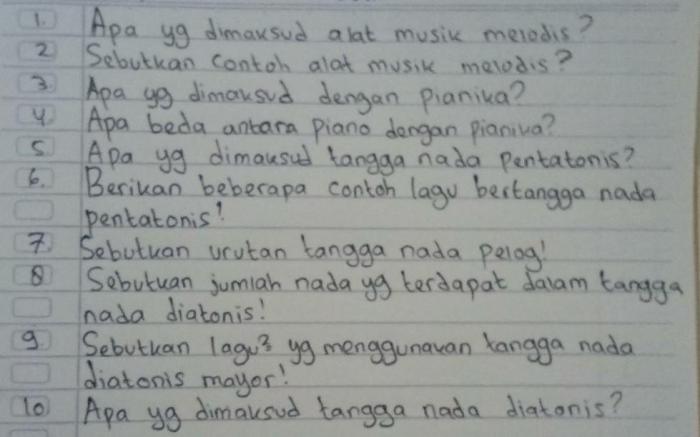 1. Apa yg dimaksud alat musik melodis?
2 Sebutkan contoh alat musik melodis?
3 Apa yg dimaksud dengan pianika?
4 Apa beda antara piano dengan pianika?
5 Apa yg dimaksud tangga nada pentatonis?
6. Berikan beberapa contoh lagu bertangga nada
pentatonis!
7 Sebutkan urutan tangga nada pelog!
8 Sebutkan jumlah nada yg terdapat dalam tangga
nada diatonis!
9 Sebutkan lagu2 yg menggunakan tangga nada
diatonis mayor!
10 Apa yg dimaksud tangga nada diatonis?